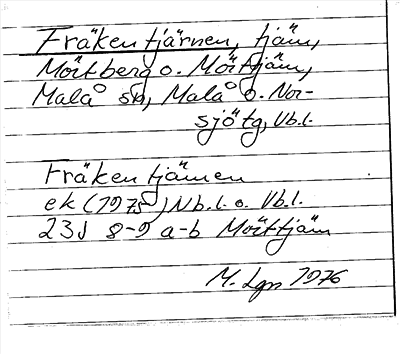 Fräkentjärnen, tjärn,
Mörtberg o. Mörttjärn,
Malå sn, Malå o. Nor-
sjö tg, Vb.l.
Fräkentjärnen
ek (1975) Nb.l. o. Vb.l.
23J 8-9 a-b Mörttjärn
M. Lgn 1976